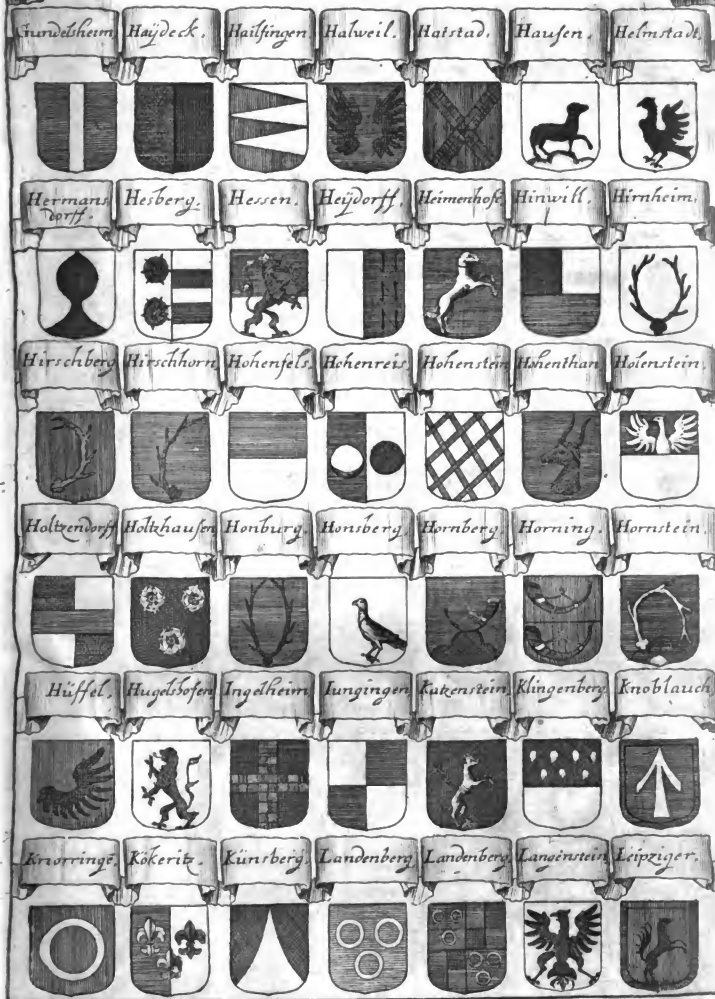 Gundelsheim. Haÿdeck. Hailfingen. Halweil. Hatstad. Hausen. Helmstadt.
Hermans
dorff. Hesberg. Hessen. Heÿdorff. Heimenhofe. Hinwill. Hirnheim.
Hirschberg Hirschhorn Hohenfels. Hohenreis. Hohenstein Hohenthan Holenstein.
Holtzendorff Holtzhausen Honburg. Honsberg Hornberg. Horning. Hornstein.
Hüffel. Hugelshofen Ingelheim Iungingen Katzenstein. Klingenberg. Knoblauch
Knorringe. Kökeritz. Künsberg. Landenberg Landenberg. Langenstein Leipziger.